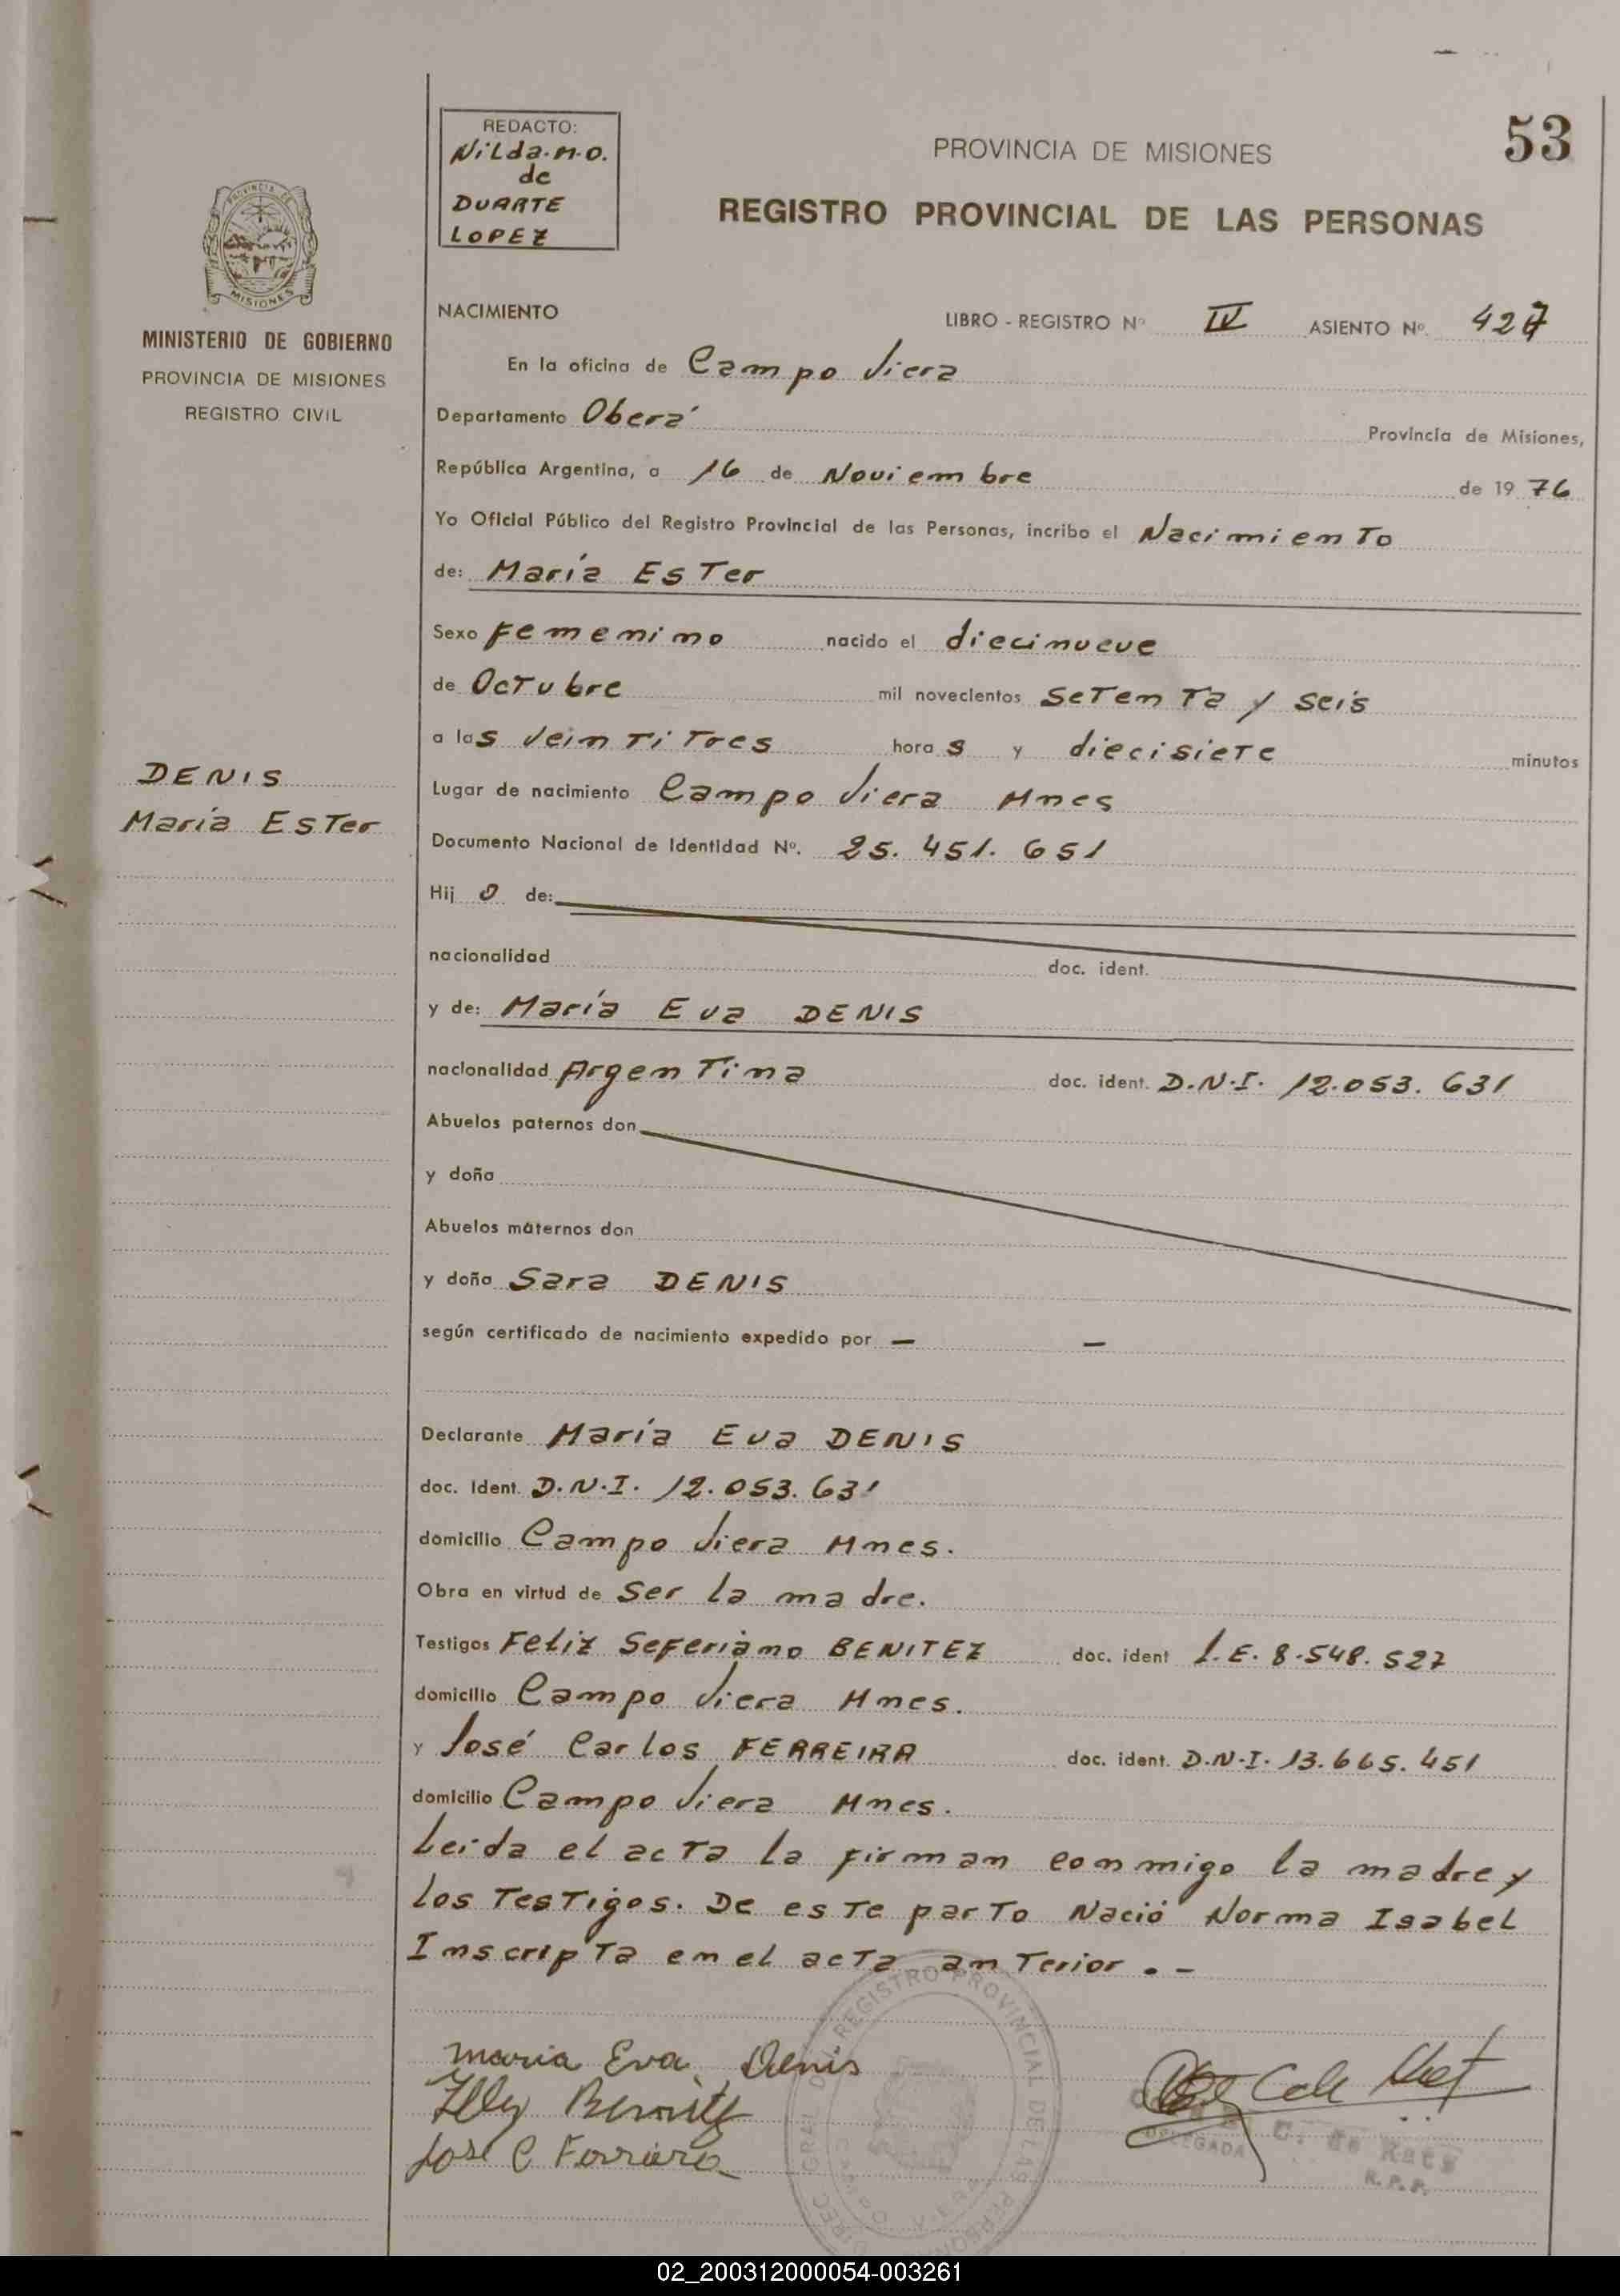 53
REDACTO:
Nilda.M.O.
de
DUARTE
LOPEZ
PROVINCIA DE MISIONES
REGISTRO PROVINCIAL DE LAS PERSONAS
PROVINCIA DE
MISIONES
MINISTERIO DE GOBIERNO
PROVINCIA DE MISIONES
REGISTRO CIVIL
DENIS
María Ester
NACIMIENTO LIBRO - REGISTRO Nº IV ASIENTO Nº. 427
En la oficina de Campo Viera
Departamento Oberá Provincia de Misiones,
República Argentina, a 16 de Noviembre de 1976
Yo Oficial Público del Registro Provincial de las Personas, incribo el Nacimiento
de: María Ester
Sexo Femenino nacido el diecinueve
de Octubre mil novecientos setenta y seis
a las veintitres horas y diecisiete minutos
Lugar de nacimiento Campo Viera Mnes
Documento Nacional de Identidad Nº. 25.451.651
Hij de:
nacionalidad doc. ident.
y de: María Eva DENIS
nacionalidad Argentina doc. ident. D.N.I. 12.053.631
Abuelos paternos don
y doña
Abuelos maternos don
y doña Sara DENIS
según certificado de nacimiento expedido por — —
Declarante María Eva DENIS
doc. Ident. D.N.I. 12.053.631
domicilio Campo Viera Mnes.
Obra en virtud de ser la madre.
Testigos Feliz Seferiano BENITEZ doc. ident L.E. 8.548.527
domicilio Campo Viera Mnes.
y José Carlos FERREIRA doc. ident. D.N.I. 13.665.451
domicilio Campo Viera Mnes.
Leida el acta la firman conmigo la madre y
los Testigos. De este parto Nació Norma Isabel
Inscripta en el acta anterior.-
Maria Eva Denis
Benitez
Jose C Ferreira
REGISTRO PROVINCIAL DE LAS
C. de
DELEGADA
R.P.P.
02_200312000054-003261